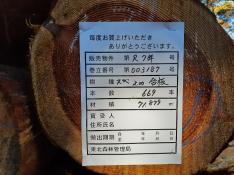 毎度お買上げいただき
ありがとうございます。
販売物件 第R7年 号
巻立番号 第003187 号
樹種 スギ 2.00 合板
本数 669 本
材積 71.899 m
買受人
住所氏名
搬出期間 自 年 月 日
至 年 月 日
東北森林管理局